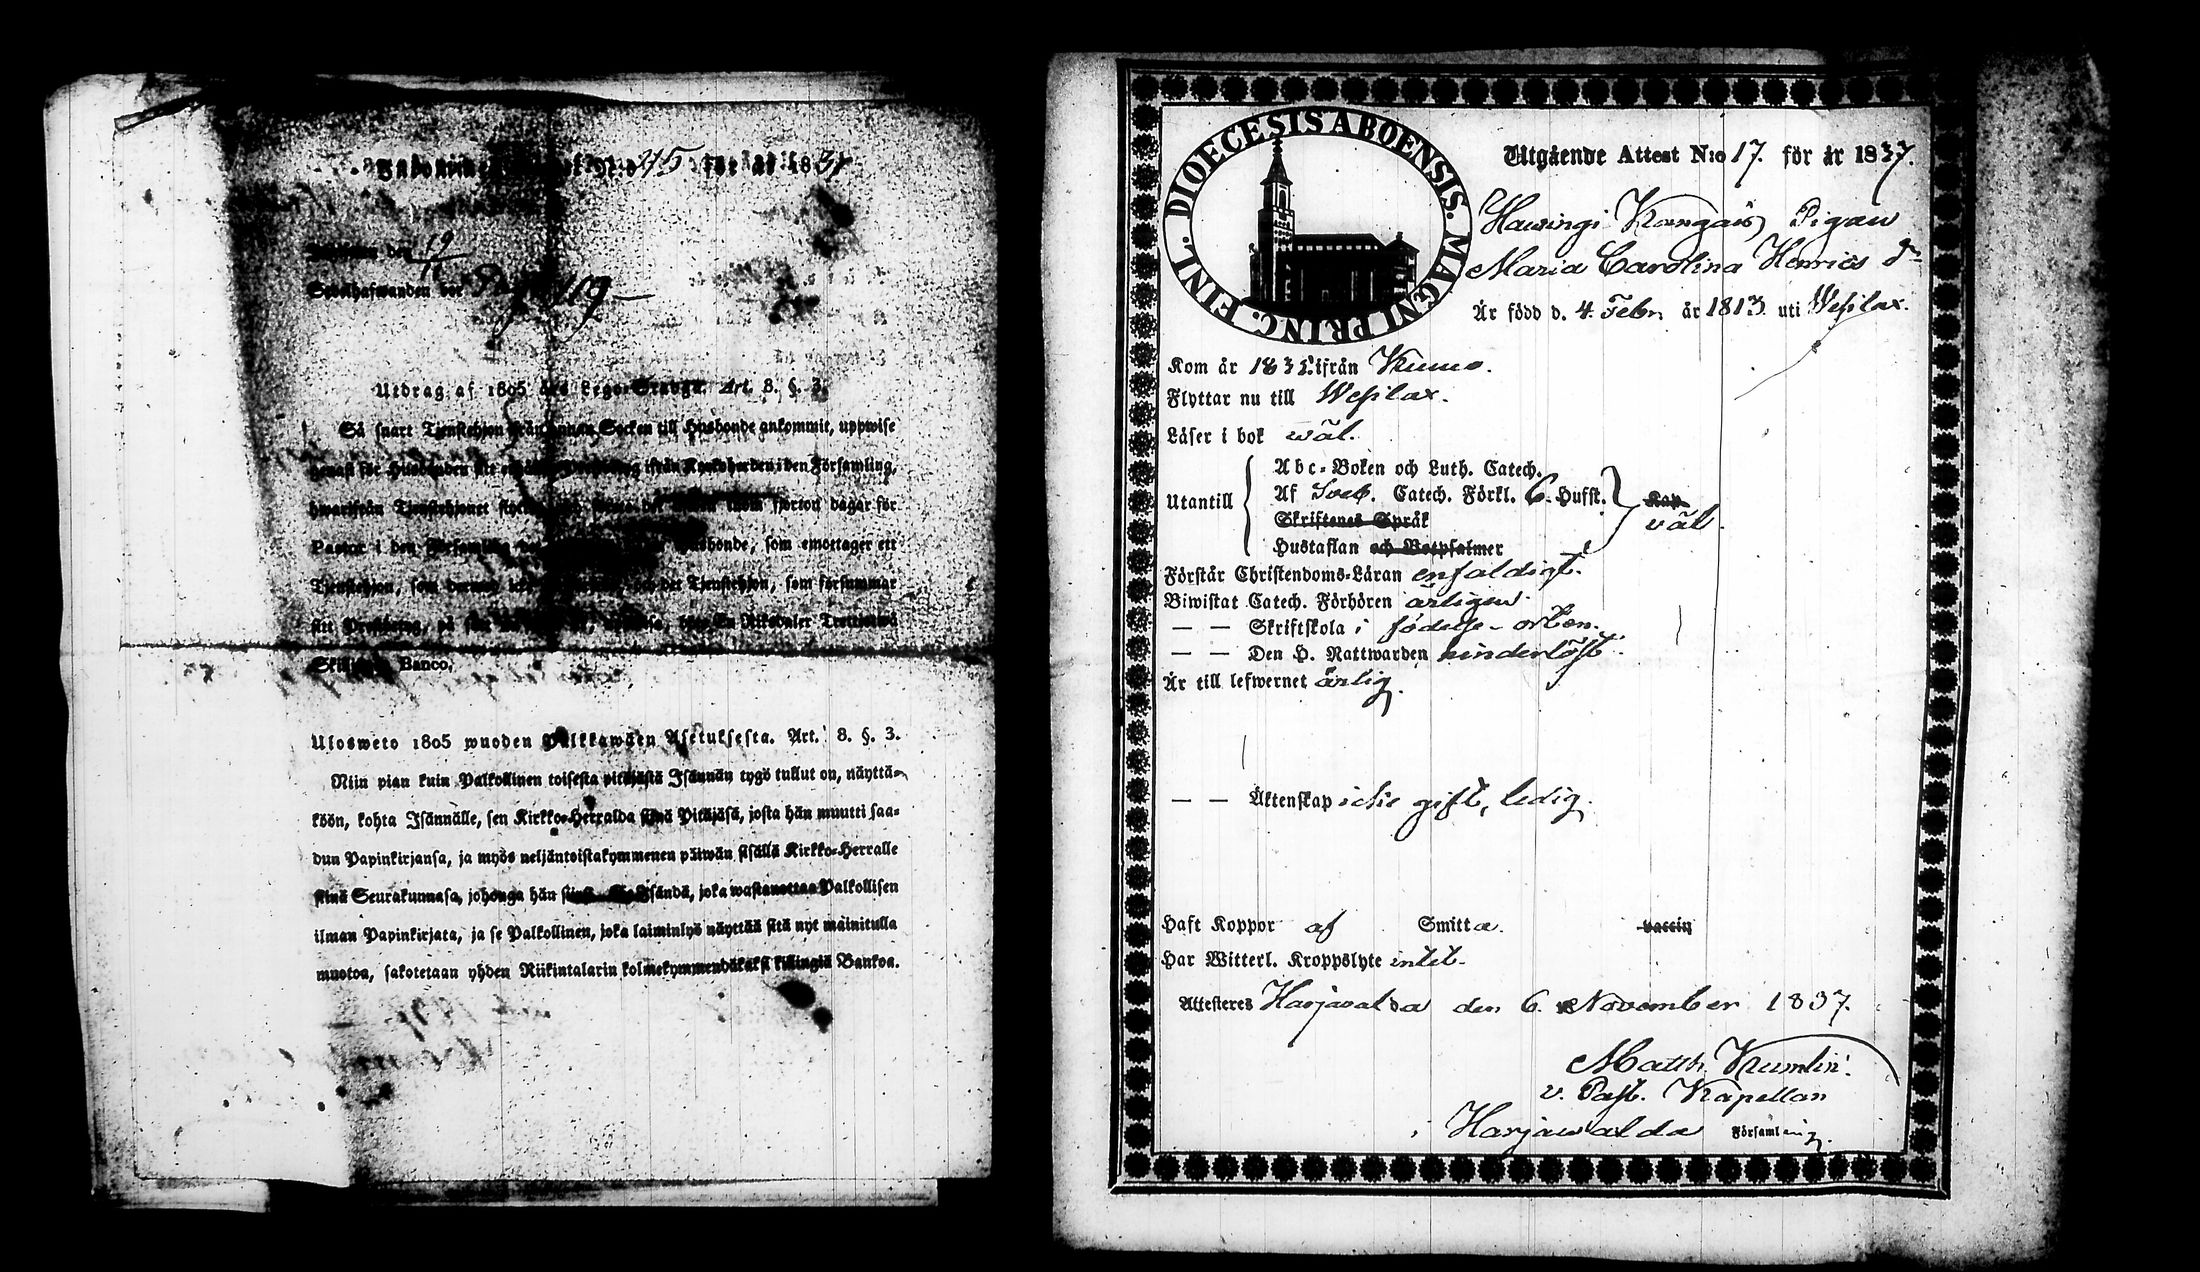 N:o 45 för år 1837
den 19/11
Sedelhafwanden bör Pag 119
Utdrag af 1805 års Lego-Stadga. Art. 8. §. 3.
Så snart Tjenstehjon från annan Socken till Husbonde ankommit, uppwise
genast för Husbonden sitt ifrån Kyrkoherden i den Församling,
hwarifrån Tjenstehjonet inom fjorton dagar för
Pastor i den Församling Husbonde, som emottager ett
Tjenstehjon, som och det Tjenstehjon, som försummar
sitt Prestbetyg, på En Riksdaler Trettiotwå
Skillingar Banco.
Ulosweto 1805 wuoden Palkkawäen Asetuksesta. Art. 8. §. 3.
Niin pian kuin Palkollinen toisesta pitäjästä Isännän tygö tullut on, näyttä-
köön, kohta Isännälle, sen Kirkko-Herralda siinä Pitäjäsä, josta hän muutti saa-
dun Papinkirjansa, ja myös neljäntoistakymmenen päiwän sisällä Kirkko-Herralle
siinä Seurakunnasa, johonga hän Isändä, joka wastanottaa Palkollisen
ilman Papinkirjata, ja se Palkollinen, joka laiminlyö näyttää sitä nyt mainitulla
muotoa, sakotetaan yhden Riikintalarin kolmekymmendäkaksi killingiä Bankoa.
DIOECESIS ABOENSIS. MAGNI PRINC. FINL.
Utgående Attest N:o 17. för år 1837.
Hawingi Kangais Pigan
Maria Carolina Henrics d:r
Är född d. 4. Febr. år 1813 uti Wesilax.
Kom år 1835 ifrån Kumo.
Flyttar nu till Wesilax.
Läser i bok wäl.
Utantill
Abc-Boken och Luth. Catech.
Af Sveb. Catech. Förkl. 6. Hufst.
Skriftenes Språk
Hustaflan och Botpsalmer
Kap
wäl.
Förstår Christendoms-Läran enfaldigt.
Biwistat Catech. Förhören årligen.
— — Skriftskola i födelse-orten.
— — Den H. Nattwarden hinderlöst.
Är till lefwernet ärlig.
— — Äktenskap icke gift, ledig.
Haft Koppor af Smitta. vaccin
Har Witterl. Kroppslyte intet.
Attesteres Harjavalda den 6. November 1837.
Matth. Kumlin.
v. Past. Kapellan
i Harjawalda Församling.